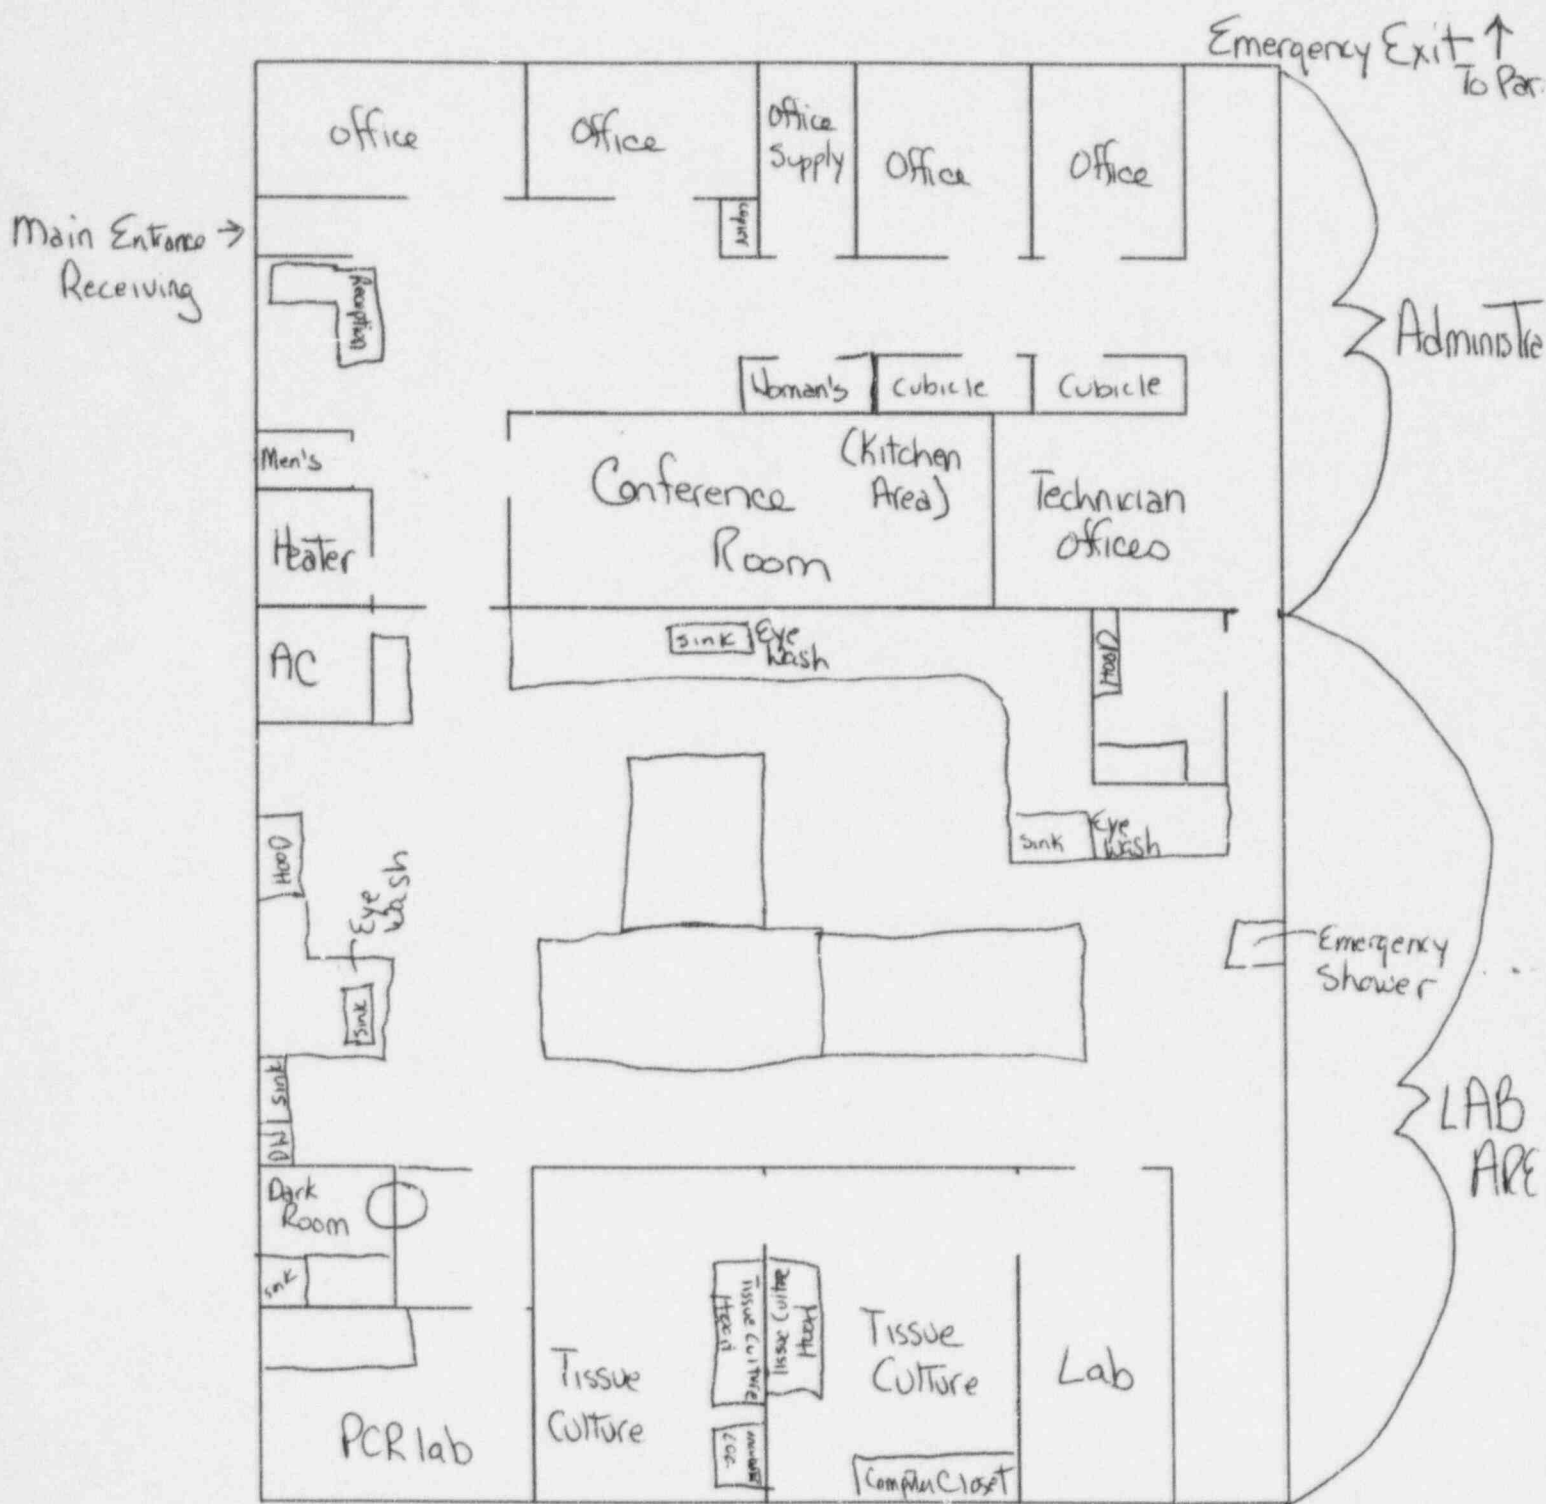 Emergency Exit ↑
To Par
Office
Office
Office
Supply
Office
Office
Copier
Main Entrance →
Receiving
Reception
Administra
Woman's
Cubicle
Cubicle
Men's
Heater
Conference
Room
(Kitchen
Area)
Technician
Offices
AC
Sink
Eye
Wash
Hood
Sink
Eye
Wash
Hood
Eye
Wash
Sink
Emergency
Shower
Sink
DW
LAB
ARE
Dark
Room
Sink
PCR lab
Tissue
Culture
Tissue Culture
Hood
Tissue Culture
Hood
Tissue
Culture
Computer Closet
Lab